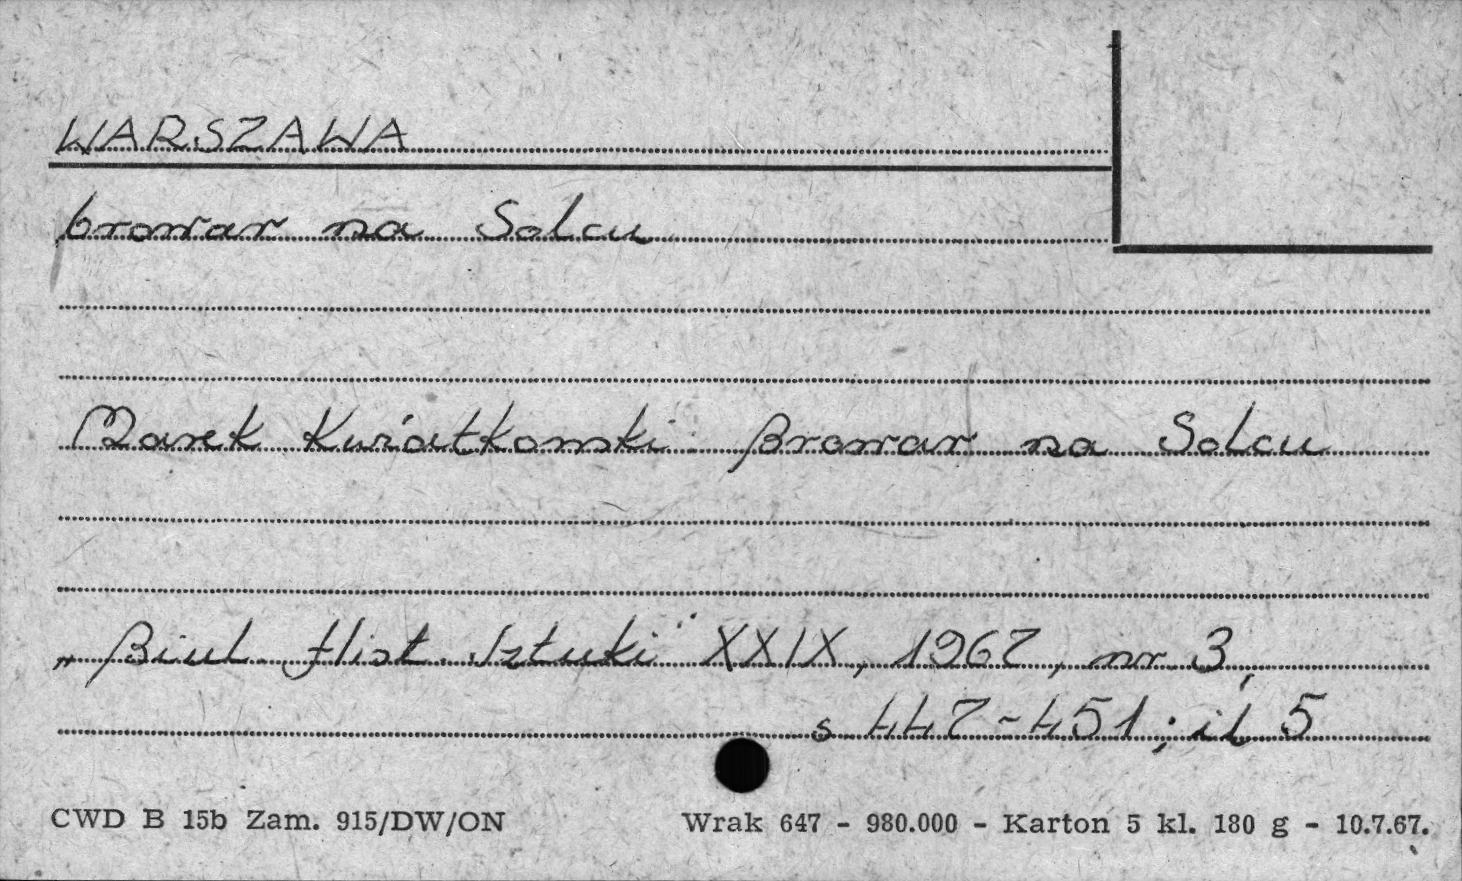 WARSZAWA
browar na Solcu
Marek Kwiatkowski Browar na Solcu
„Biul. Hist. Sztuki" XXIX, 1967, nr 3,
s 447-451; il 5
CWD B 15b Zam. 915/DW/ON Wrak 647 - 980.000 - Karton 5 kl. 180 g - 10.7.67.